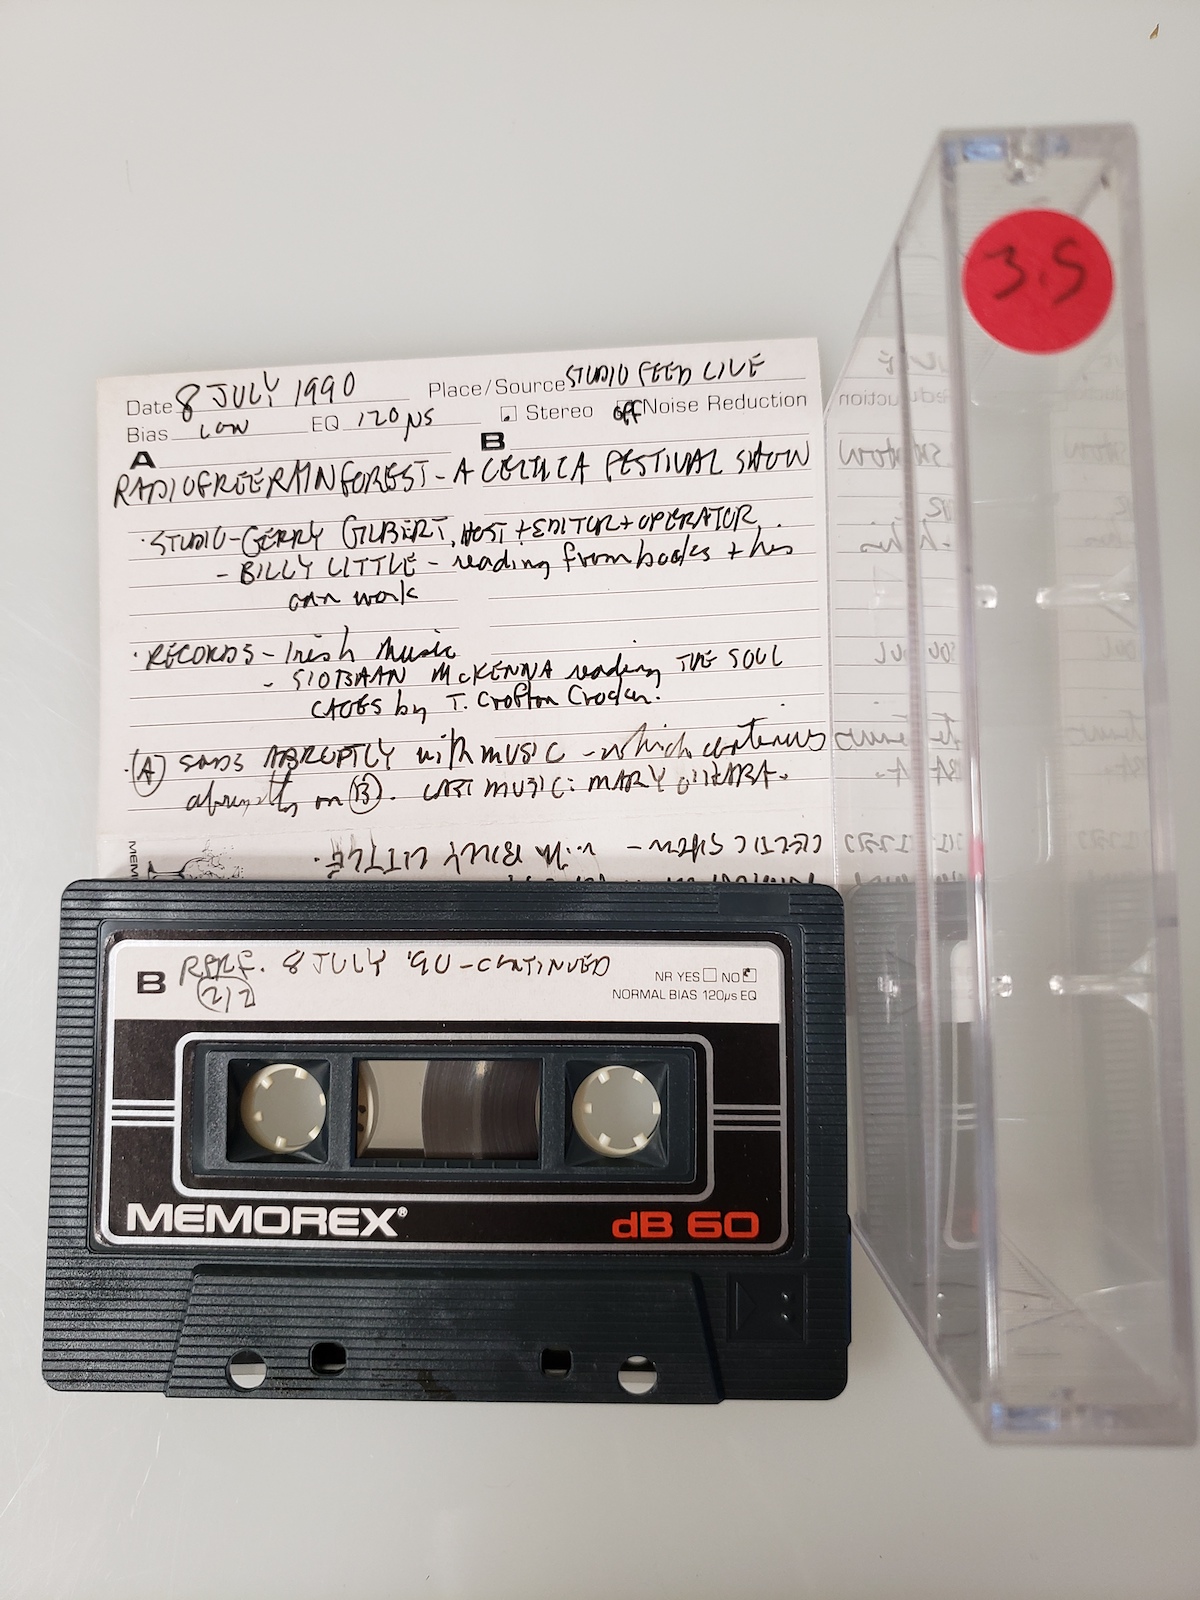 3.5
Date 8 JULY 1990 Place/Source STUDIO FEED LIVE
Bias LOW EQ 120 µs Stereo off Noise Reduction
A B
RADIOFREERAINFOREST - A CELTIC FESTIVAL SHOW
· STUDIO - GERRY GILBERT, HOST + EDITOR + OPERATOR
- BILLY LITTLE - reading from books + his
own work
· RECORDS - Irish Music
- SIOBHAN McKENNA reading THE SOUL
CAGES by T. Crofton Croker.
· (A) ENDS ABRUPTLY with MUSIC - which continues
abruptly on (B). LAST MUSIC: MARY O'HARA.
CELTIC SHOW - with BILLY LITTLE.
MEM
B RFRF. 8 JULY '90 - CONTINUED
2/2
NR YES NO
NORMAL BIAS 120µs EQ
MEMOREX® dB 60